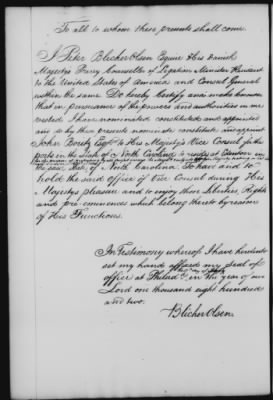 To all to whom these presents shall come
I Peter Blicher Olsen Esquire His Danish
Majesty's Privy Counsellor of Legation Minister Resident
to the United States of America and Consul General
within the same Do hereby Certify and make known
that in pursuance of the powers and authorities in me
vested I have nominated constituted and appointed
and do by these presents nominate constitute and appoint
John Boritz Esqr. to be His Majesty's Vice Consul for the
ports in the State of North Carolina to reside at Edenton in
the said State of North Carolina. To have and to
hold the said office of Vice Consul during His
Majestys pleasure and to enjoy those Liberties, Rights
and pre-eminences which belong thereto by reason
of His Functions.
In Testimony whereof I have hereunto
set my hand affixed my seal of
office at Philada. in the year of our
Lord one thousand eight hundred
and two.
Blicher Olsen.